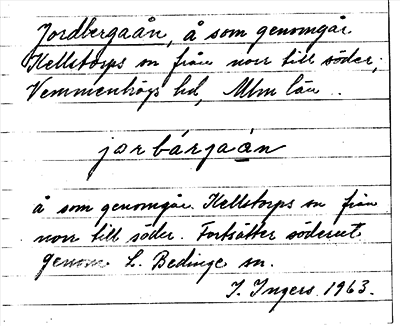 Jordbergaån, å som genomgår
Kellstorps sn från norr till söder;
Vemmenhögs hd, Mlm län.
jorbárgaàn
å som genomgår Kellstorps sn från
norr till söder. Fortsätter söderut
genom L. Bedinge sn.
I. Ingers 1963.